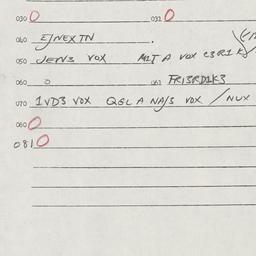 030 0 031 0
040 EJNEXTN
050 JEN3 VOX MIT A VOX
060 0 061 FRI3RD1K3
070 1VD3 VOX QGL A NA/3 VOX / NUX
080 0
081 0